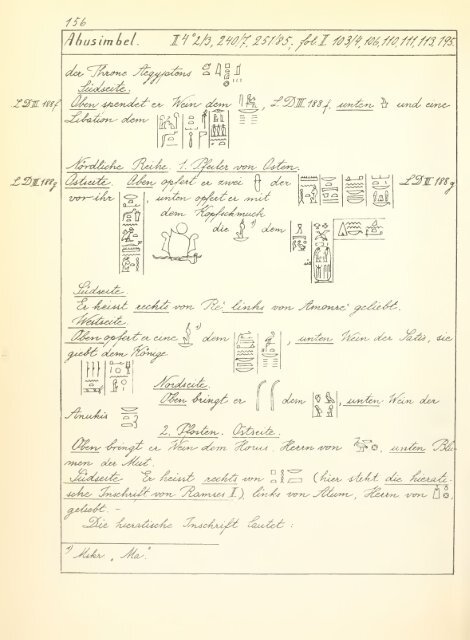 156
Abusimbel. II 4° 2/3, 240/7, 251/85; fol. I 103/4, 106, 110, 111, 113, 195
der Throne Aegyptens
Südseite.
LD III 188f Oben spendet er Wein dem , LD III 188f, unten und eine
Libation dem
Nördliche Reihe. 1. Pfeiler von Osten.
LD III 188g Ostseite. Oben opfert er zwei der LD III 188g
vor ihr , unten opfert er mit
dem Kopfschmuck
die ¹) dem
Südseite.
Er heisst rechts von Rēʿ links von Amonreʿ geliebt.
Westseite.
Oben opfert er eine ¹) dem , unten Wein der Satis, sie
giebt dem Könige
Nordseite.
Oben bringt er dem , unten Wein der
Anukis
2. Pfosten. Ostseite.
Oben bringt er Wein dem Horus, Herrn von , unten Blu-
men der Mut.
Südseite Er heisst rechts von (hier steht die hierati-
sche Inschrift von Ramses I), links von Atum, Herrn von
geliebt. -
Die hieratische Inschrift lautet:
¹) Mskr „Ma".